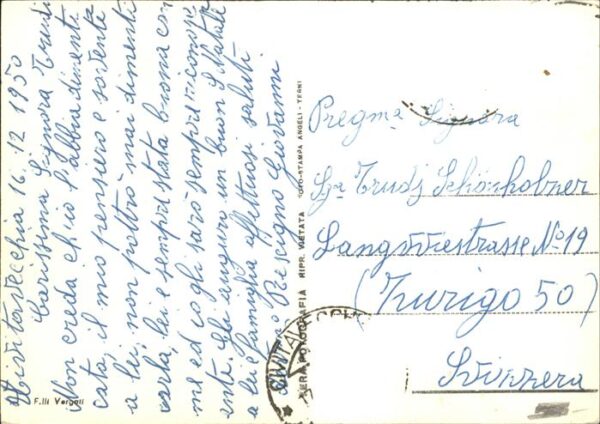 Civitavecchia 16. 12 1950
Carissima Signora Trudi
Non creda chio l'abbia dimenti
cata, il mio pensiero e sovente
a lei, non pottrò mai dimenti
carla, lei e sempre stata buona con
me ed io gli sarò sempre riconosc
ente. gli auguro un buon S Natale
a lei famiglia affettuosi saluti
Giovanni
F.lli Vergati
VERA FOTOGRAFIA RIPR. VIETATA ROTO-STAMPA ANGELI - TERNI
Pregma Signora
Sra Trudj Schönholzner
Langwiestrasse No 19
(Zurigo 50)
Svizzera